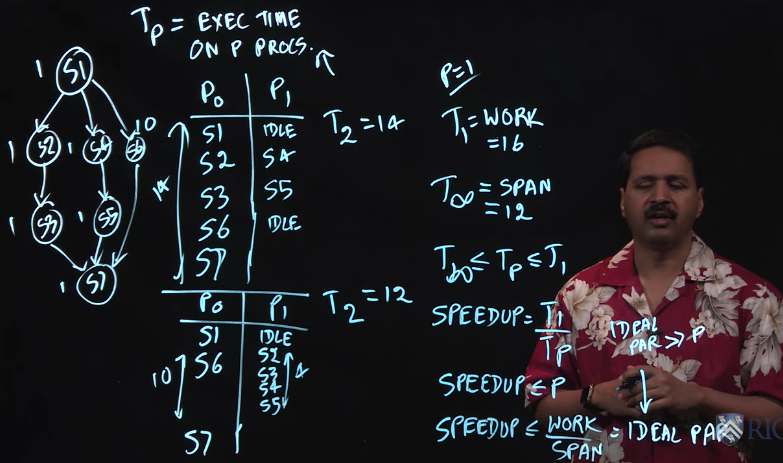 Tp = EXEC TIME
ON P PROCS.
1 S1
1 S2 1 S4 10 S6
1 S3 1 S5
1 S7
P0 P1
S1 IDLE
S2 S4
S3 S5
S6 IDLE
S7
14
T2 = 14
P0 P1
S1 IDLE
S6 S2
S3
S4
S5
S7
10
4
T2 = 12
P=1
T1 = WORK
= 16
T∞ = SPAN
= 12
T∞ ≤ Tp ≤ T1
SPEEDUP = T1
Tp
IDEAL
PAR >> P
SPEEDUP ≤ P
SPEEDUP ≤ WORK
SPAN
= IDEAL PAR